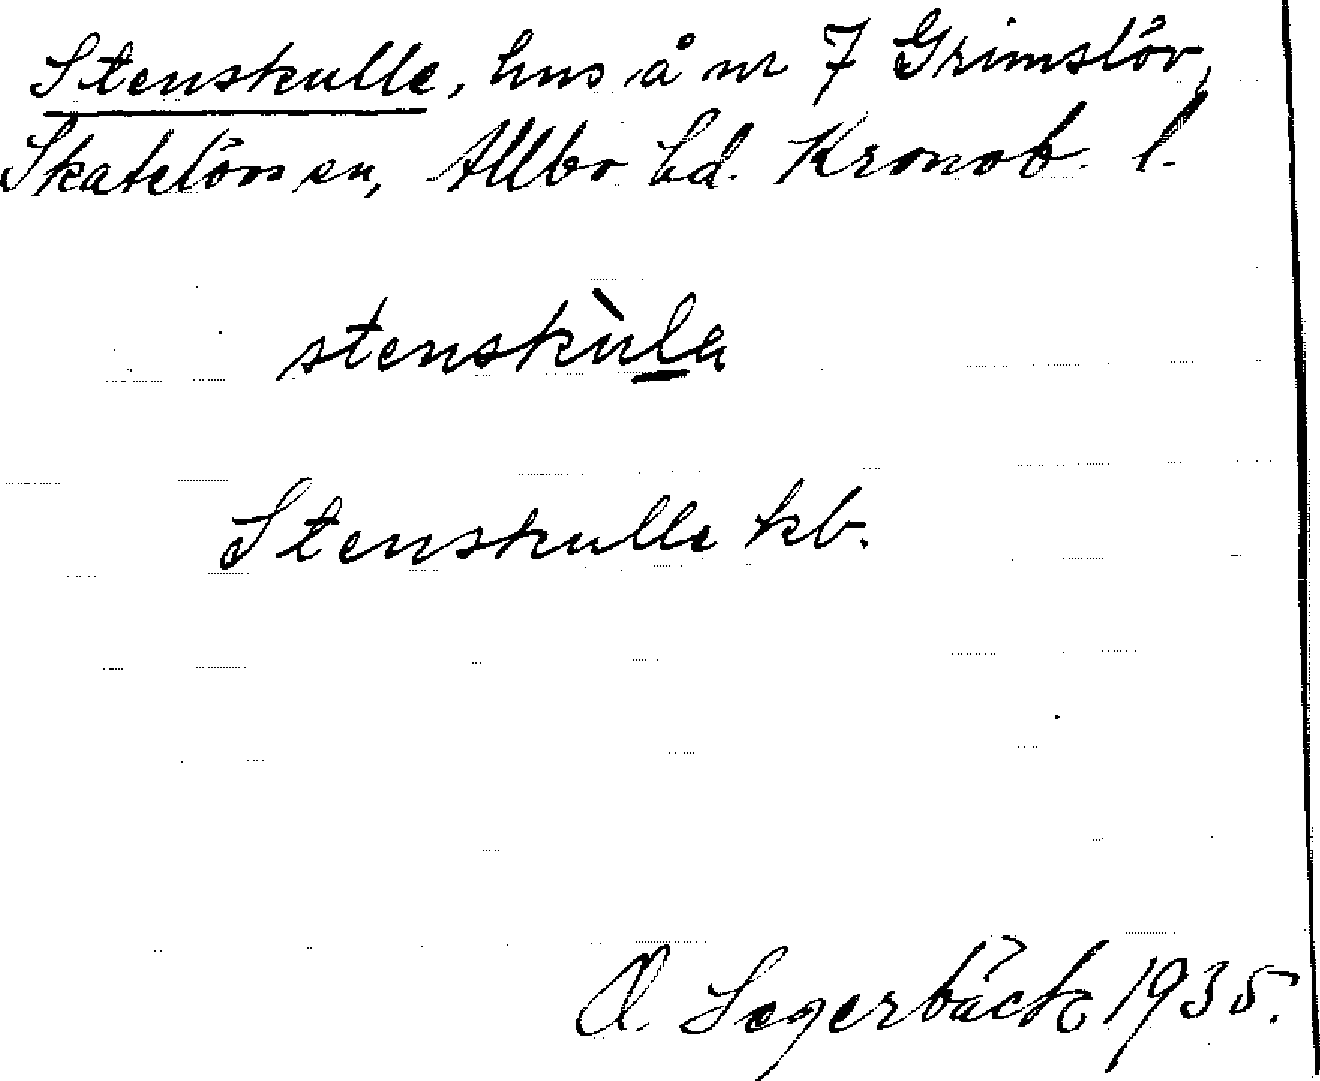 Stenskulle, hus å nr 7 Grimslöv,
Skatelövs sn, Allbo hd. Kronob. l.
stenskùla
Stenskulle kb.
O. Lagerbäck 1935.